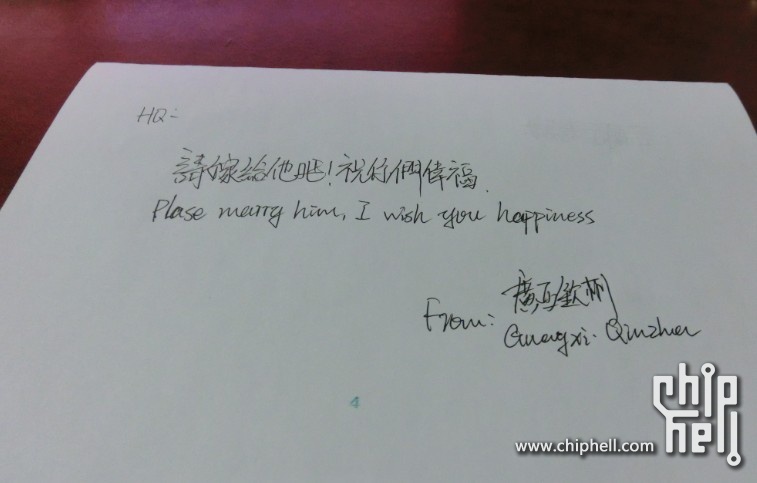 HQ:
請嫁給他吧!祝你們倖福.
Please marry him, I wish you happiness
From: 廣西鉽州
Guangxi. Qinzhou
4
chip hell
www.chiphell.com